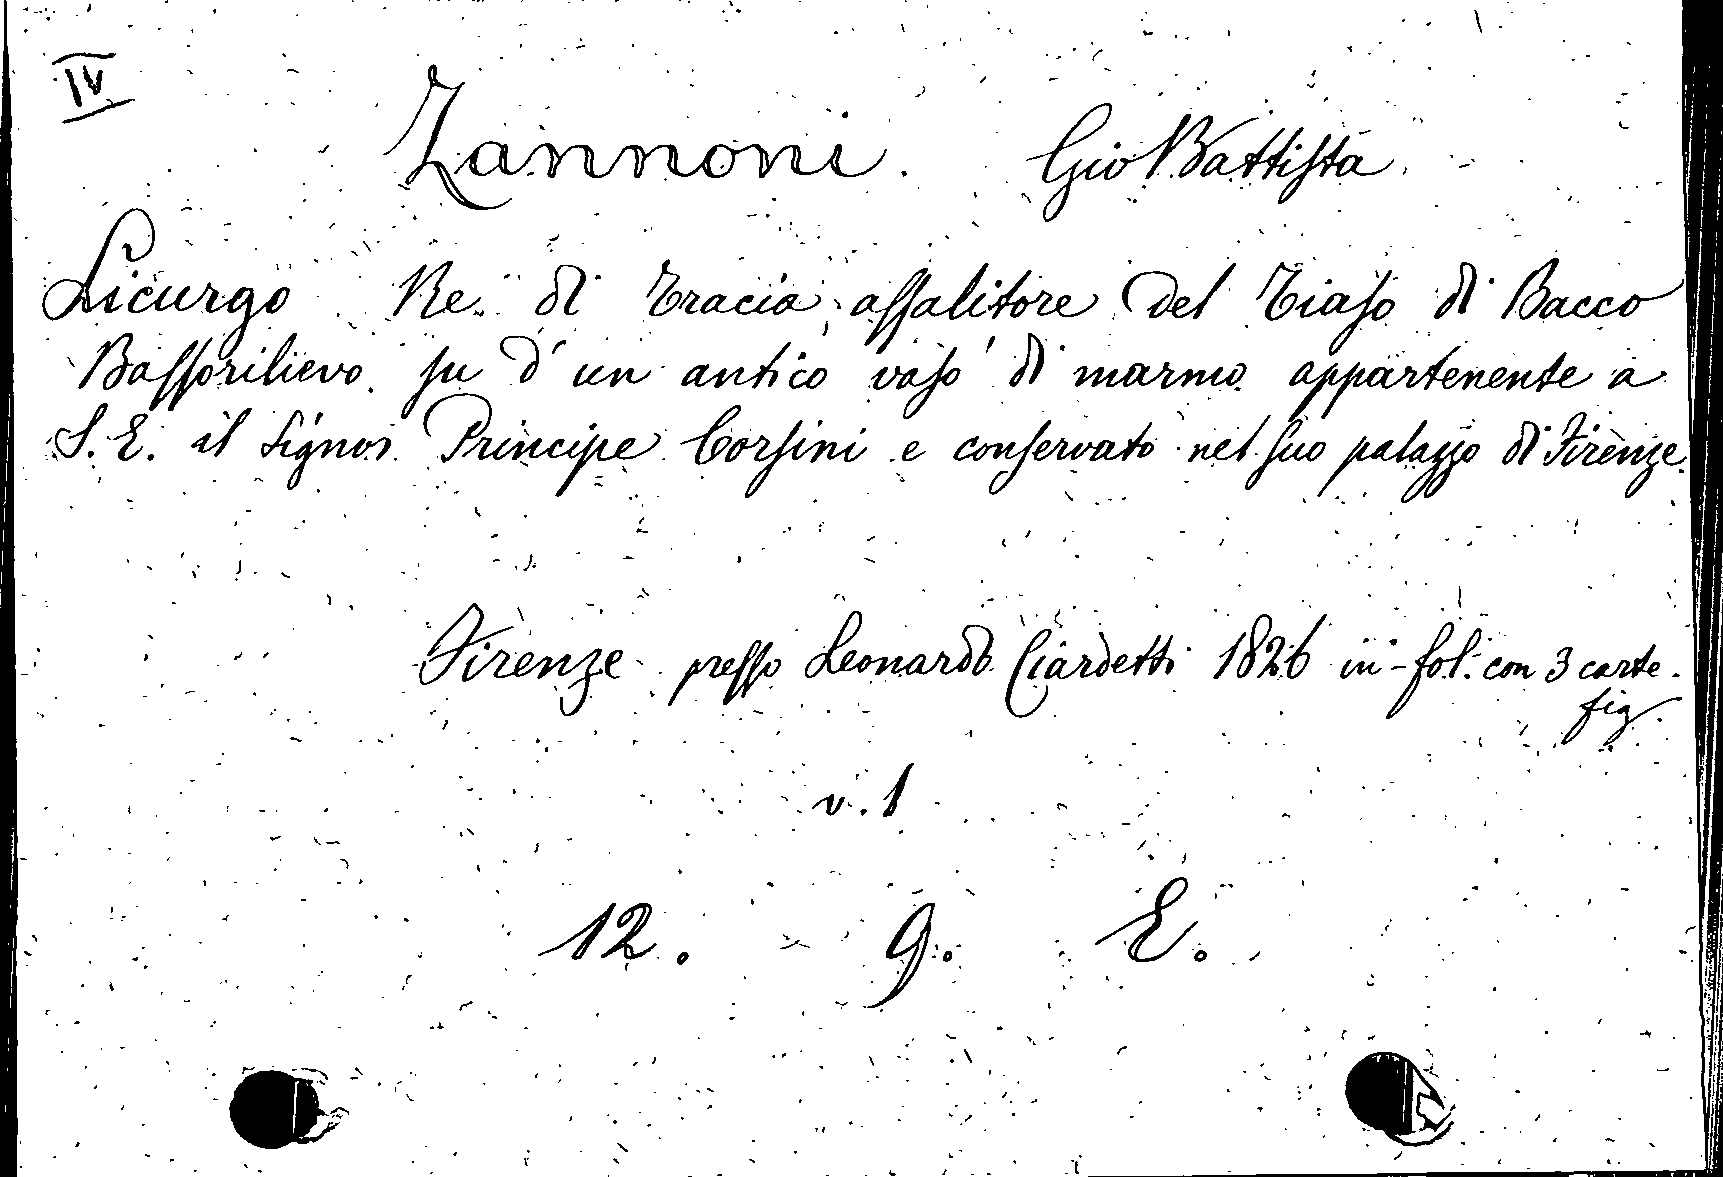 IV
Zannoni. Gio Battista.
Licurgo Re di Tracia, assalitore del Tiaso di Bacco
Bassorilievo su d'un antico vaso di marmo appartenente a
S. E. il Signor Principe Corsini e conservato nel suo palazzo di Firenze.
Firenze presso Leonardo Ciardetti 1826 in-fol. con 3 carte.
fig.
v. 1
12. 9. E.